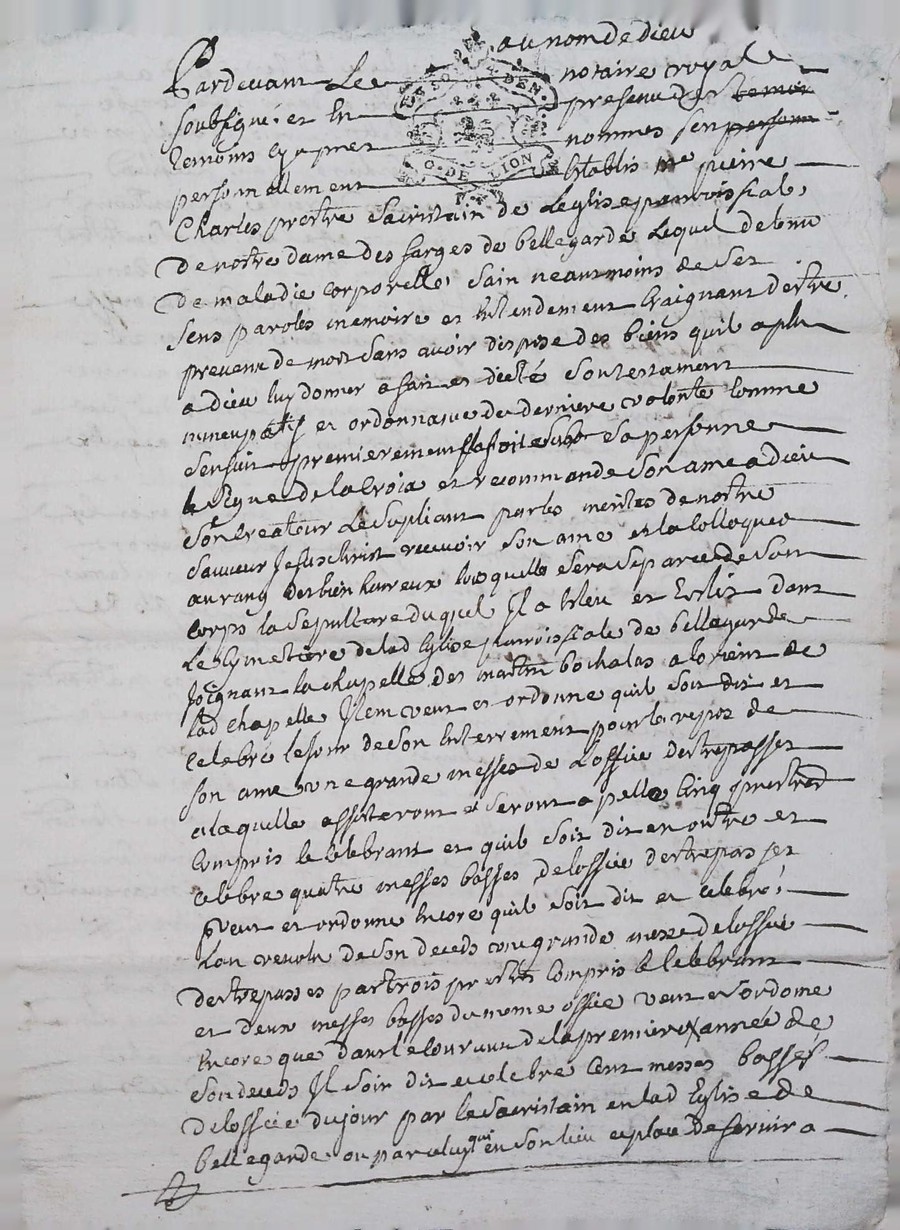 au nom de dieu
Pardevant Le notaire royal
soubsigné et En presence des temoi
temoins cy apres nommes s'en personn
personnellement Etablis mre pierre
Charles prestre Sacristain de Leglise parroissialle
De nostre dame des farges de bellegarde Lequel detenu
De maladie corporelle, sain neautmoins de ses
sens parolles memoire et Entendement Craignant d'estre
prevenu de mort sans avoir dispose des biens quil a plu
a Dieu luy donner a fait et dicté son testament
nuncupatif et ordonnance de derniere volonté Comme
sensuit premierement a fait sur sa personne
le Signe de la Croix et recommande son ame a dieu
son Createur Le Supliant par les merites de nostre
Sauveur Jesus christ recevoir son ame et la Colloquer
au rang des bien heureux lors quelle sera separee de son
corps la sepulture duquel Il a Eleu et Eslit dans
Le Cymetiere de lad Eglise parroissiale de bellegarde
Joignant la chapelle des martin bochalas a lorient de
lad chapelle Item veut et ordonne quil soit dit et
Celebré le jour de son Enterrement pour le repos de
son ame une grande messe de Loffice des trepasses
a laquelle assisteront et seront apelles Cinq prestres
Compris le Celebrant et quil soit dit en outre et
celebre quatre messes basses de loffice des trepasses
Veut et ordonne Encore quil soit dit et celebré,
Lan revolu de son deceds une grande messe de loffice
des trepasses par trois prestres Compris le Celebrant
et deux messes basses du meme office veut et ordonne
Encore que dans le courant de la premiere année de
son deceds Il soit dit et celebre Cent messes basses
de loffice du jour par le Sacristain en lad Eglise de
bellegarde ou par celuy qui en son lieu et place deservira